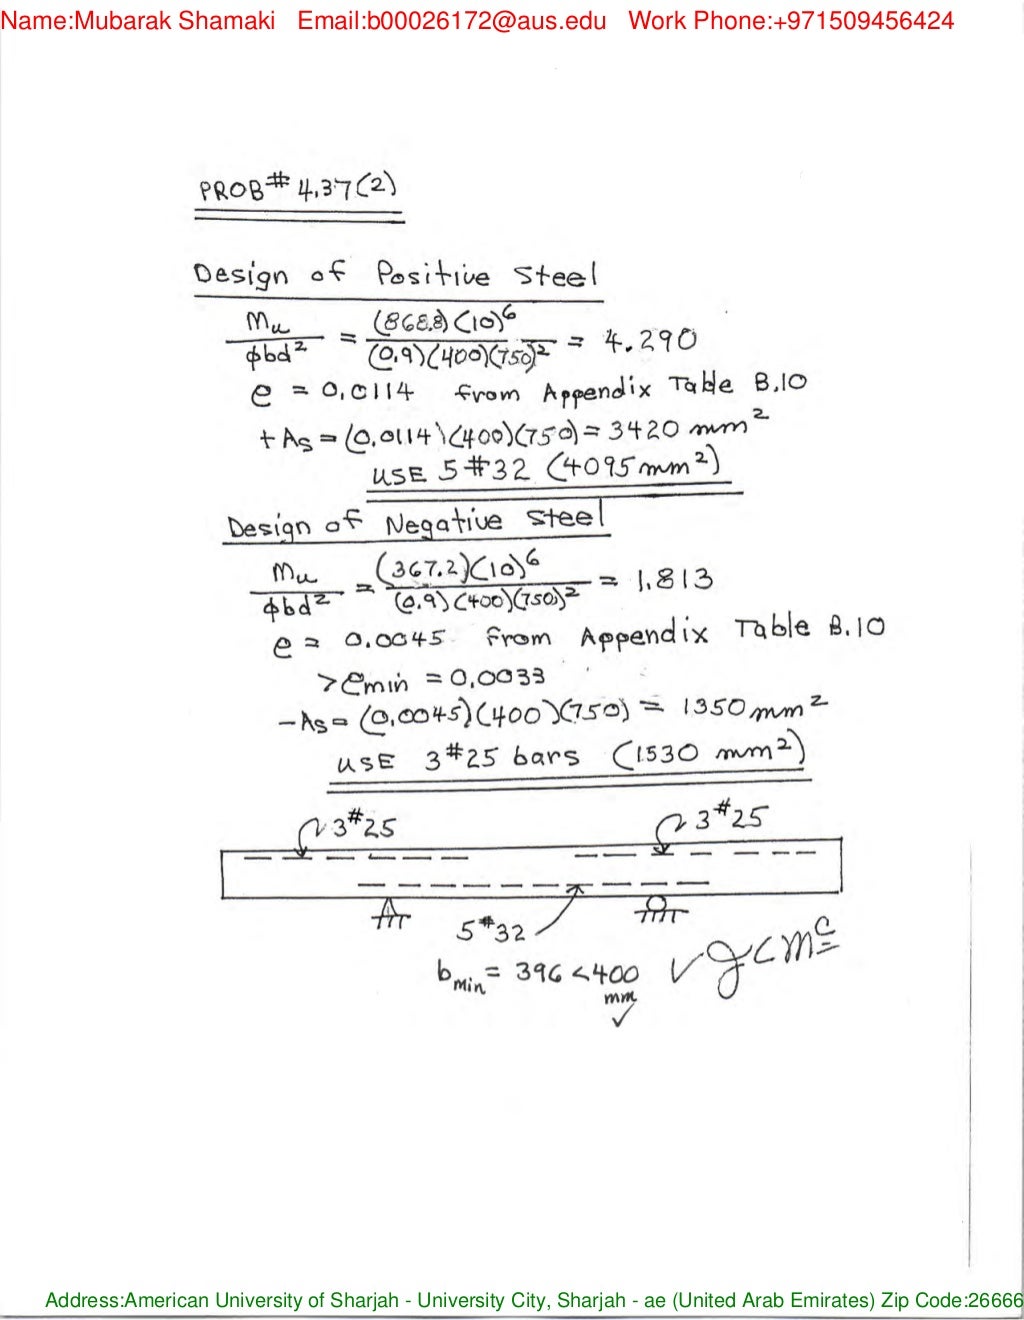 Name:Mubarak Shamaki Email:b00026172@aus.edu Work Phone:+971509456424
PROB# 4.37(2)
Design of Positive Steel
Mu/ϕbd² = (868.8)(10)⁶/(0.9)(400)(750)² = 4.290
ρ = 0.0114 from Appendix Table B.10
+As = (0.0114)(400)(750) = 3420 mm²
USE 5#32 (4095 mm²)
Design of Negative Steel
Mu/ϕbd² = (367.2)(10)⁶/(0.9)(400)(750)² = 1.813
ρ = 0.0045 from Appendix Table B.10
> ρmin = 0.0033
-As = (0.0045)(400)(750) = 1350 mm²
USE 3#25 bars (1530 mm²)
3#25 3#25
5#32
bmin = 396 < 400 mm ✓
Address:American University of Sharjah - University City, Sharjah - ae (United Arab Emirates) Zip Code:26666